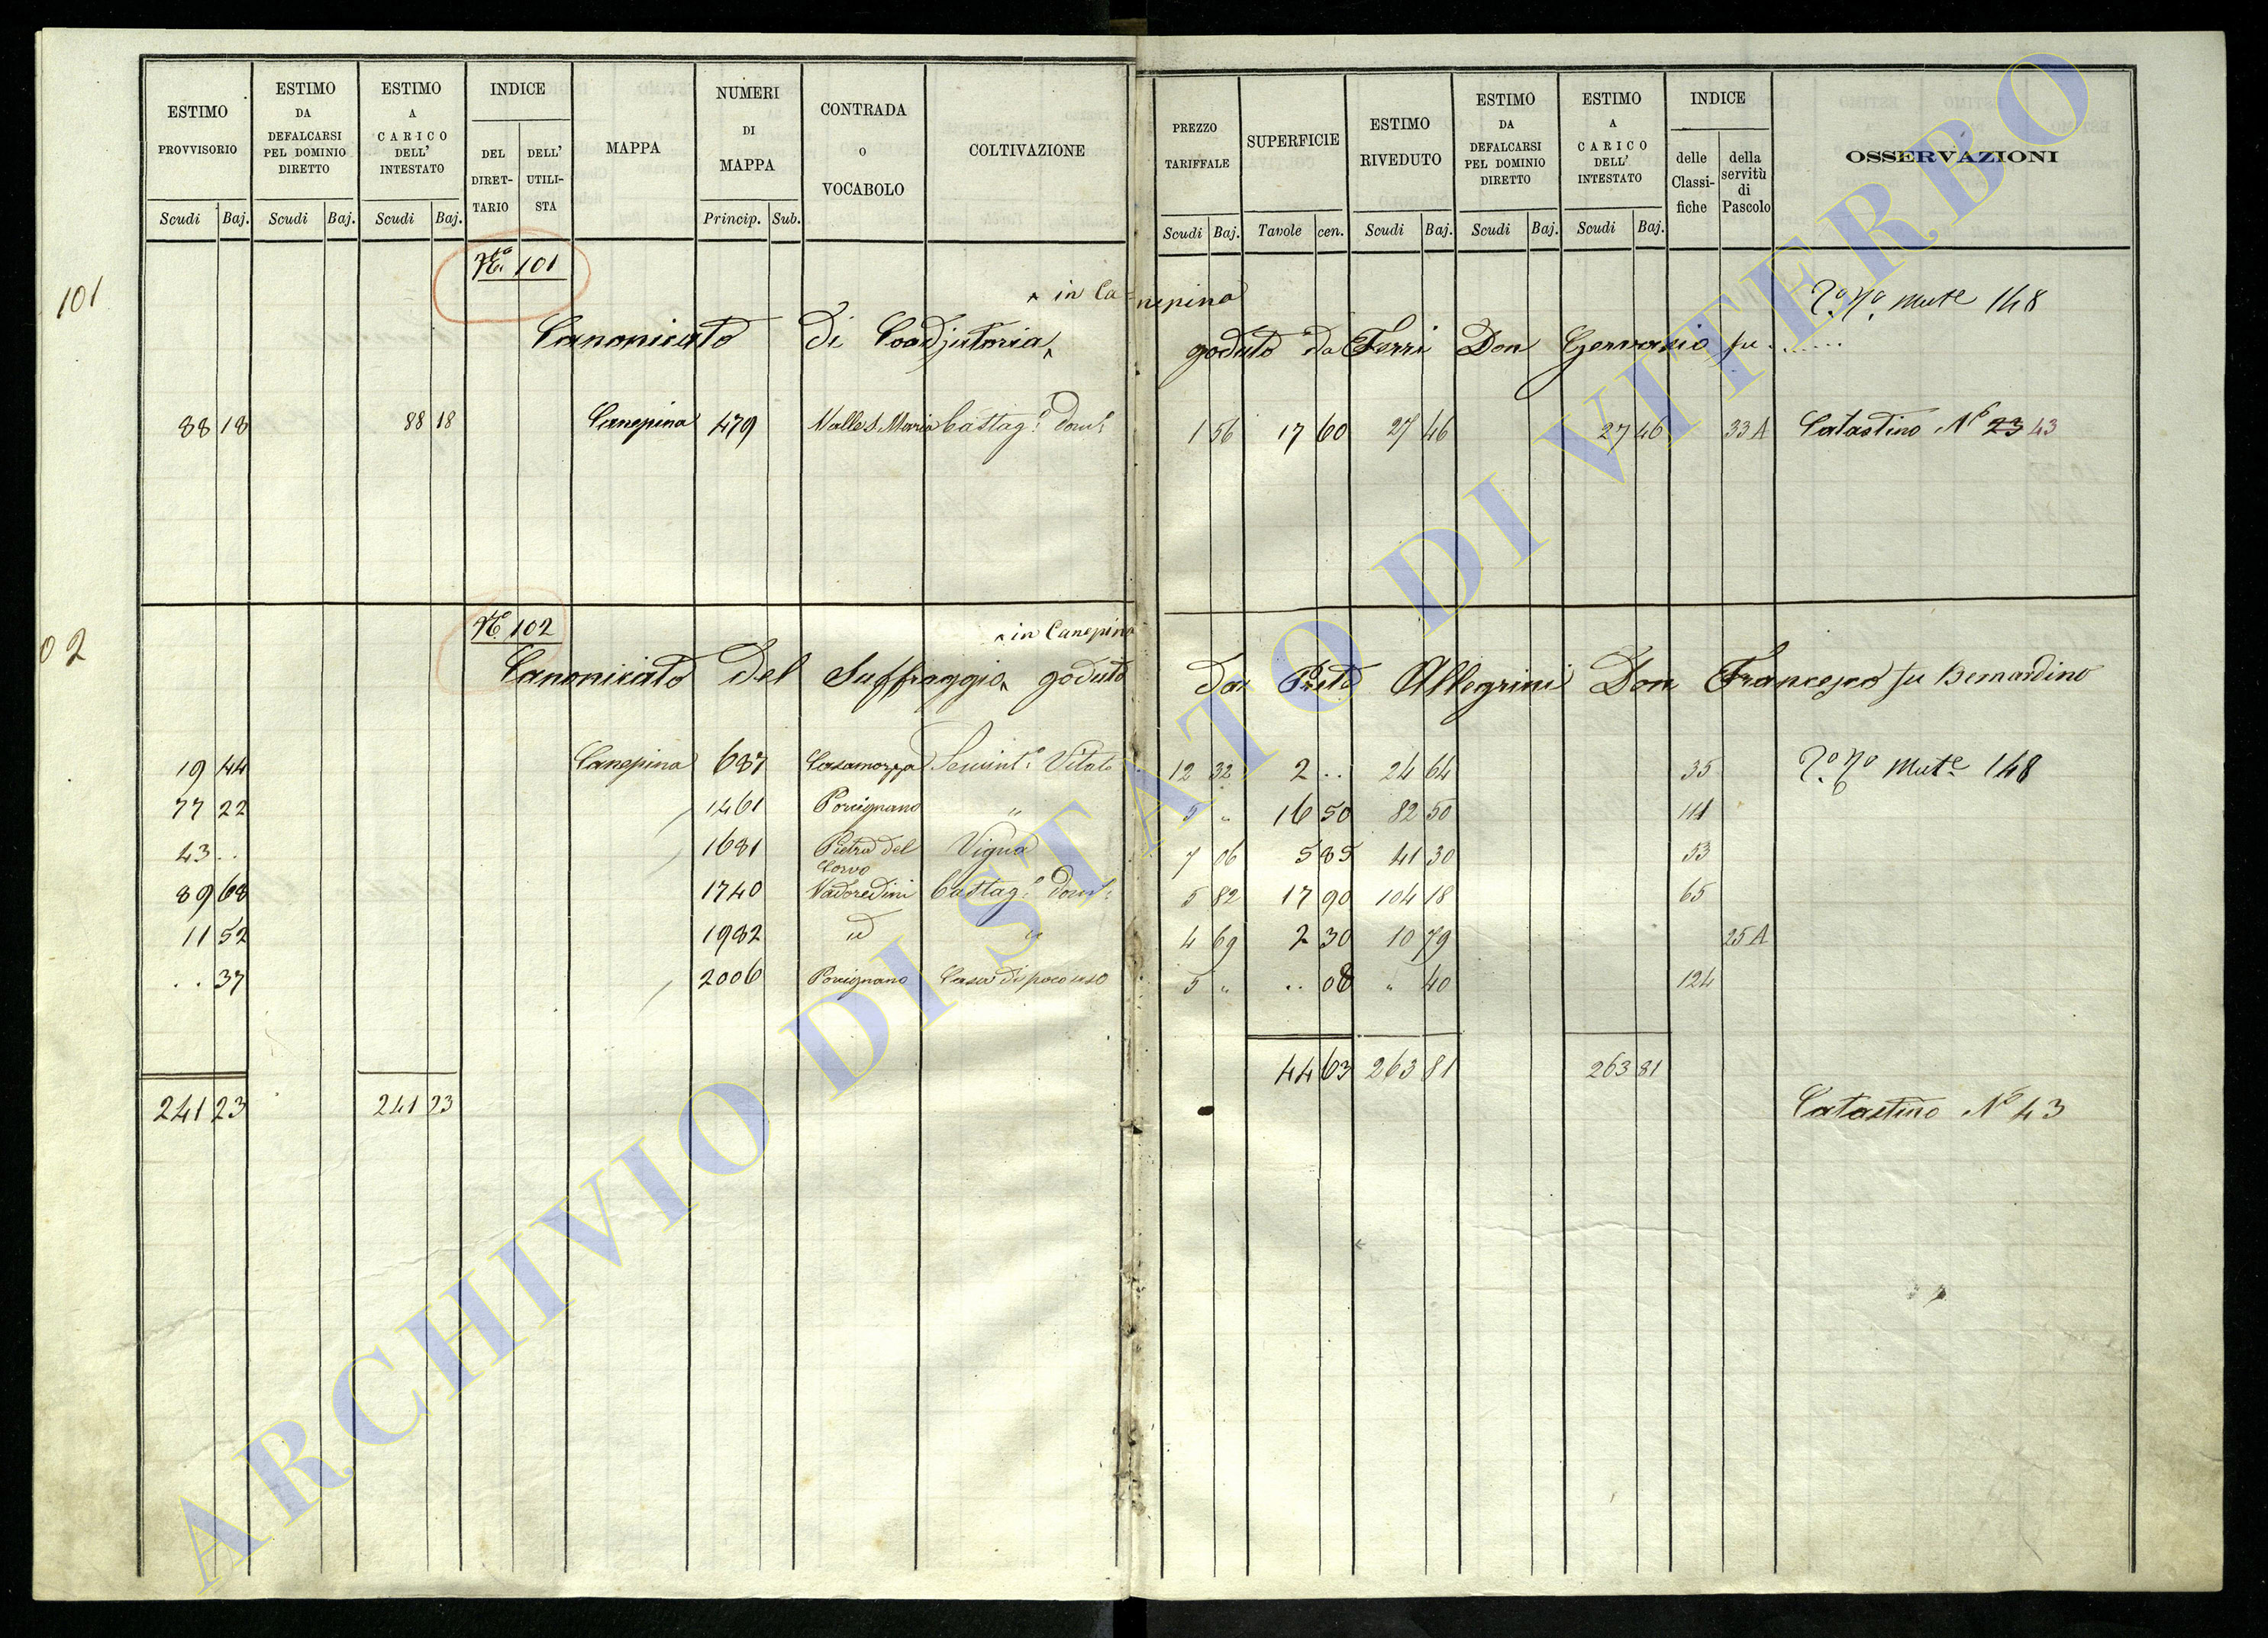 ESTIMO PROVVISORIO
ESTIMO DA DEFALCARSI PEL DOMINIO DIRETTO
ESTIMO A CARICO DELL' INTESTATO
INDICE
DEL DIRET- TARIO
DELL' UTILI- STA
MAPPA
NUMERI DI MAPPA
CONTRADA O VOCABOLO
COLTIVAZIONE
PREZZO TARIFFALE
SUPERFICIE
ESTIMO RIVEDUTO
ESTIMO DA DEFALCARSI PEL DOMINIO DIRETTO
ESTIMO A CARICO DELL' INTESTATO
INDICE
delle Classi- fiche
della servitù di Pascolo
OSSERVAZIONI
Scudi Baj. Scudi Baj. Scudi Baj. Princip. Sub. Scudi Baj. Tavole cen. Scudi Baj. Scudi Baj. Scudi Baj.
101
No. 101
^ in Canepina
Mute 148
Canonicato di Coadjutoria^ goduto da Ferri Don Gervasio fu .......
88 18 88 18 Canepina 479 Valle S. Maria Castag. dom. 1 56 17 60 27 46 27 46 33 A Catastino No 23 43
02
No. 102
^ in Canepina
Canonicato del Suffraggio^ goduto da Prete Allegrini Don Francesco fu Bernardino
19 44 Canepina 687 Casamozza Semint. Vitato 12 32 2 .. 24 64 35 Mute 148
77 22 1461 Porcignano " 5 " 16 50 82 50 111
43 .. 1681 Pietra del Corvo Vigna 7 06 5 85 41 30 53
89 68 1740 Vadoredini Castag. dom. 5 82 17 90 104 18 65
11 52 1982 id " 4 69 2 30 10 79 25 A
.. 37 2006 Porcignano Casa di poco uso 5 " .. 08 " 40 124
44 63 263 81 263 81
241 23 241 23 Catastino No 43
ARCHIVIO DI STATO DI VITERBO